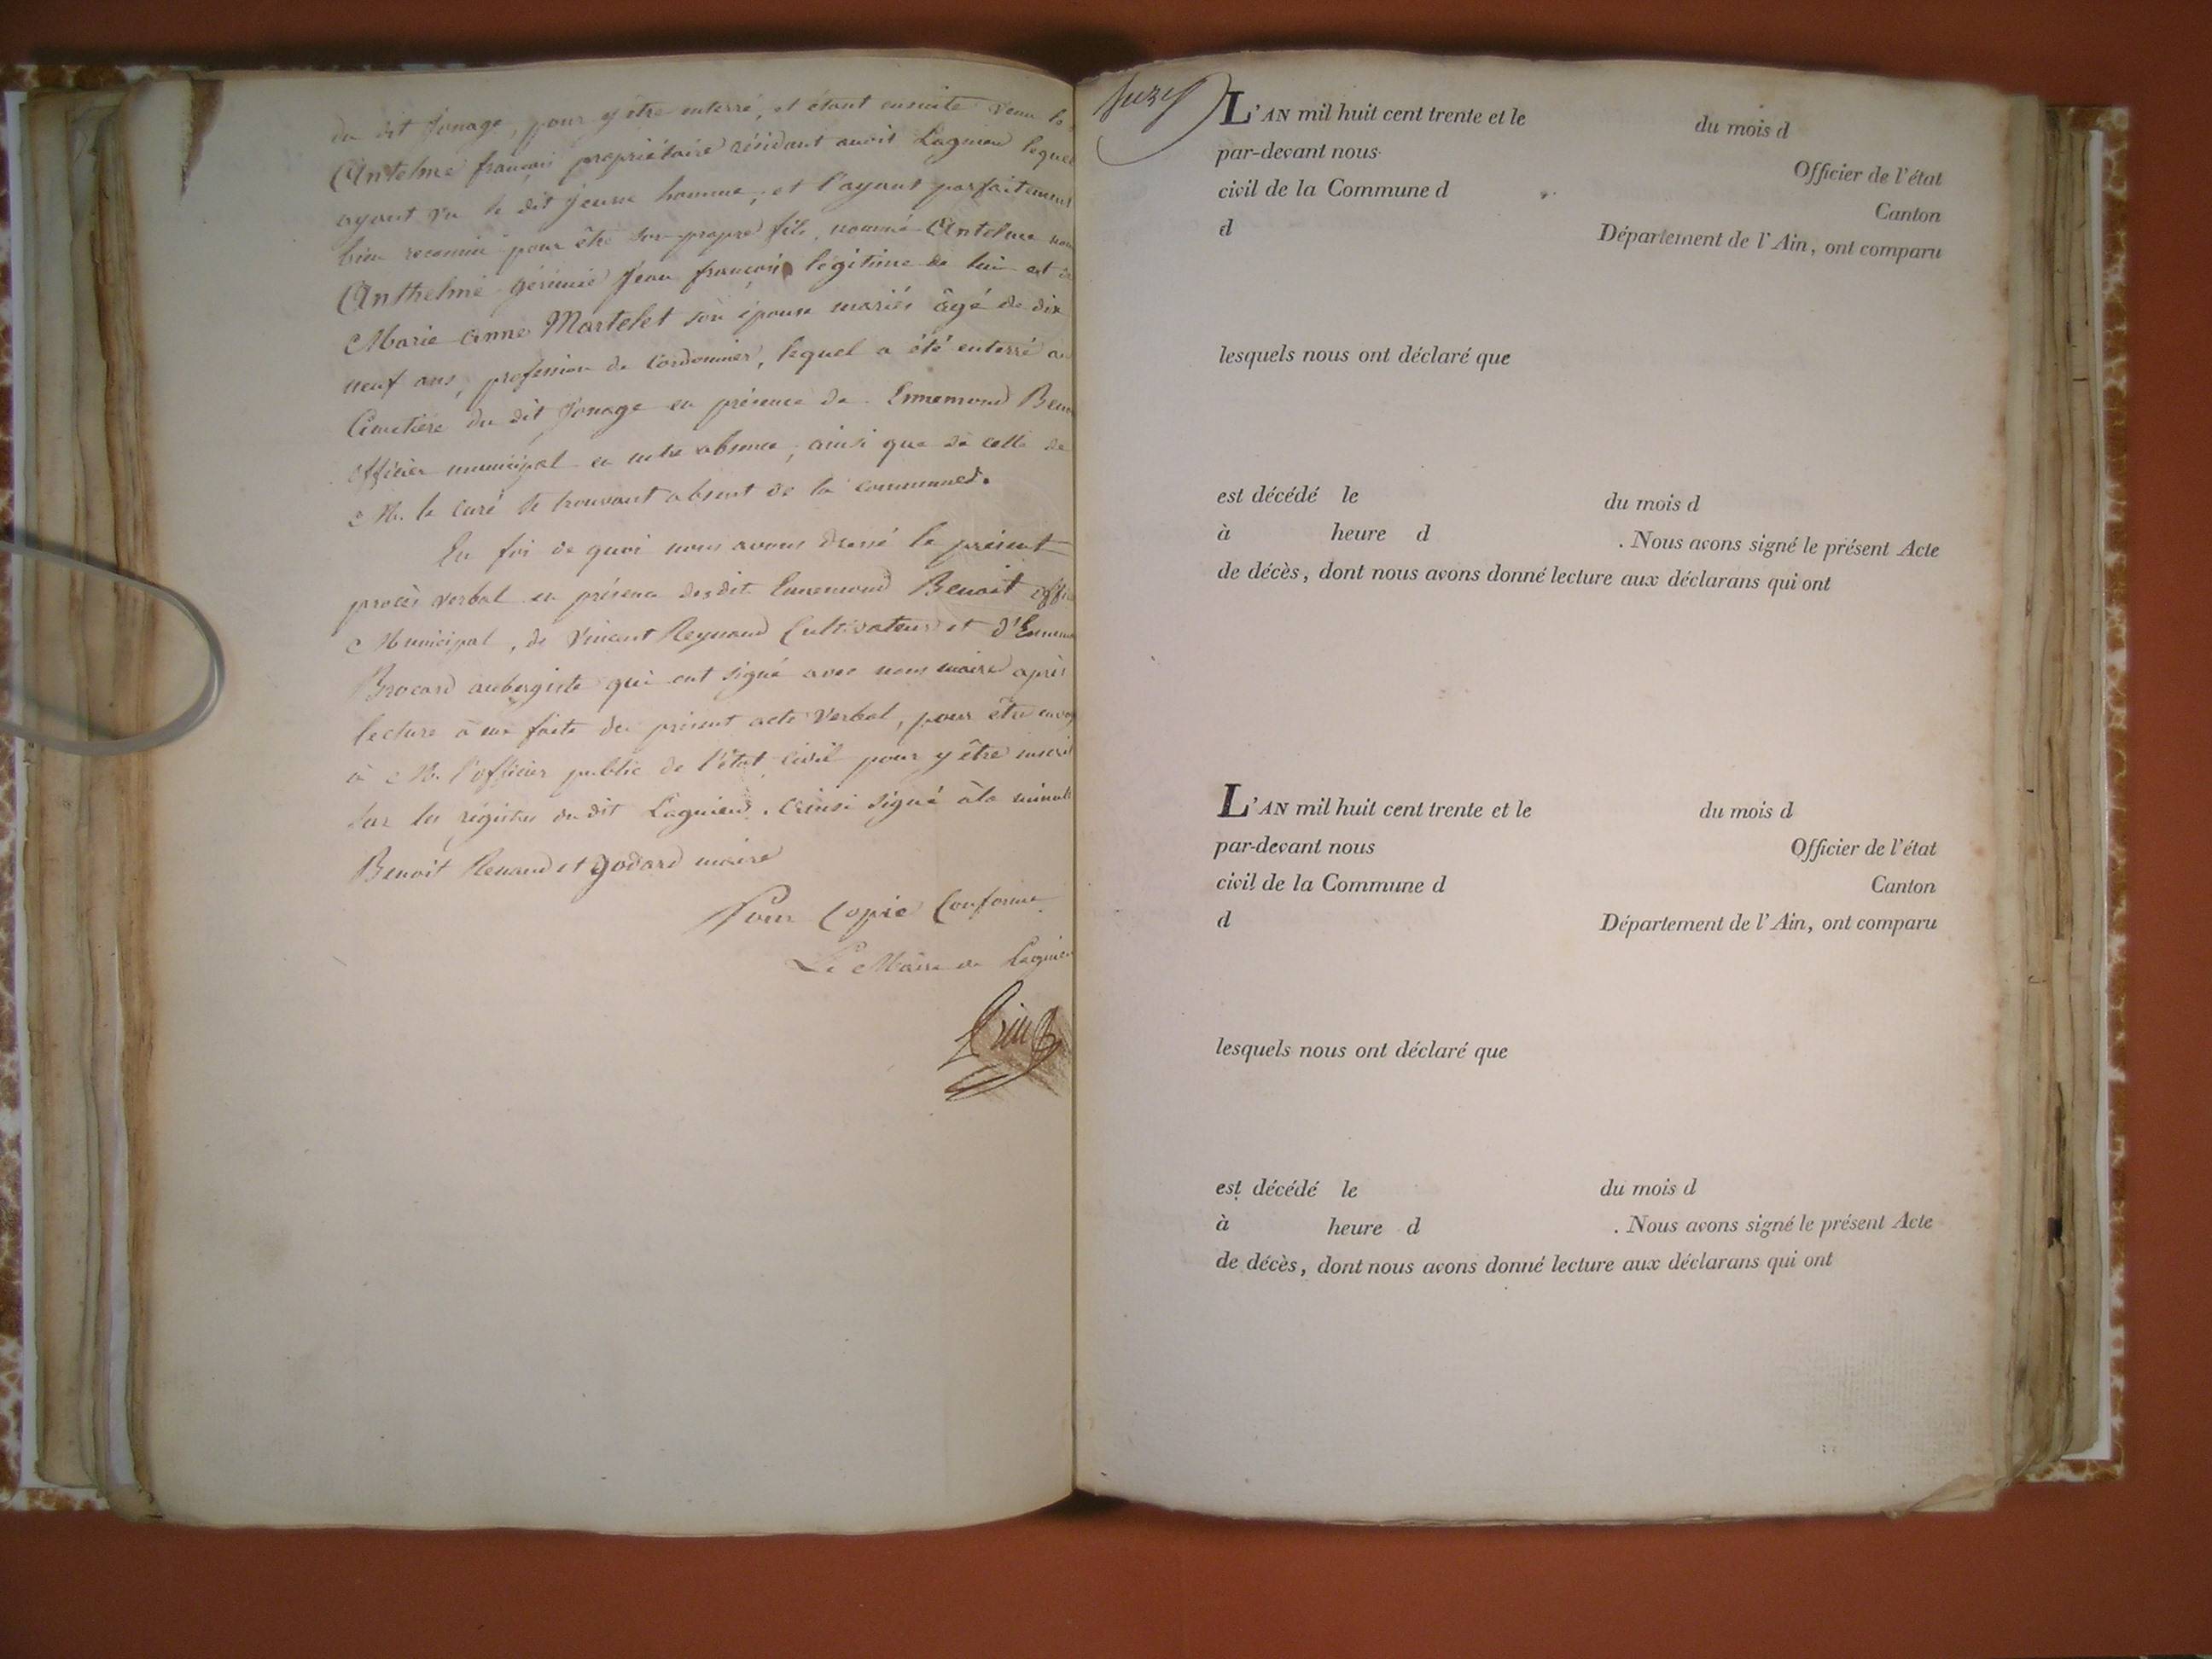 du dit Jonage, pour y être enterré, et étant ensuite venu le
Antelme français propriétaire résidant audit Lagnieu lequel
ayant vu le dit jeune homme, et l'ayant parfaitement
bien reconnu pour être son propre fils, nommé Antelme
Anthelme Jean français légitime de lui et de
Marie Anne Martelet son épouse mariés âgé de dix
neuf ans, profession de Cordonnier, lequel a été enterré au
Cimetière du dit Jonage en présence de Ennemond
officier municipal en notre absence, ainsi que de celle de
M. le curé se trouvant absent de la commune.
En foi de quoi nous avons dressé le présent
procès verbal en présence dudit Ennemond Benoit
Municipal, de Vincent Reynaud Cultivateur et
Brocard aubergiste qui ont signé avec nous maire après
lecture à eux faite du présent acte verbal, pour être
à M. l'officier public de l'état civil pour y être
sur les régistres du dit Lagnieu. Ainsi signé à la
Benoit Renaud et Godard maire
Pour Copie Conforme
Le Maire de Lagnieu
L'AN mil huit cent trente et le du mois d
par-devant nous Officier de l'état
civil de la Commune d Canton
d Département de l'Ain, ont comparu
lesquels nous ont déclaré que
est décédé le du mois d
à heure d . Nous avons signé le présent Acte
de décès, dont nous avons donné lecture aux déclarans qui ont
L'AN mil huit cent trente et le du mois d
par-devant nous Officier de l'état
civil de la Commune d Canton
d Département de l'Ain, ont comparu
lesquels nous ont déclaré que
est décédé le du mois d
à heure d . Nous avons signé le présent Acte
de décès, dont nous avons donné lecture aux déclarans qui ont